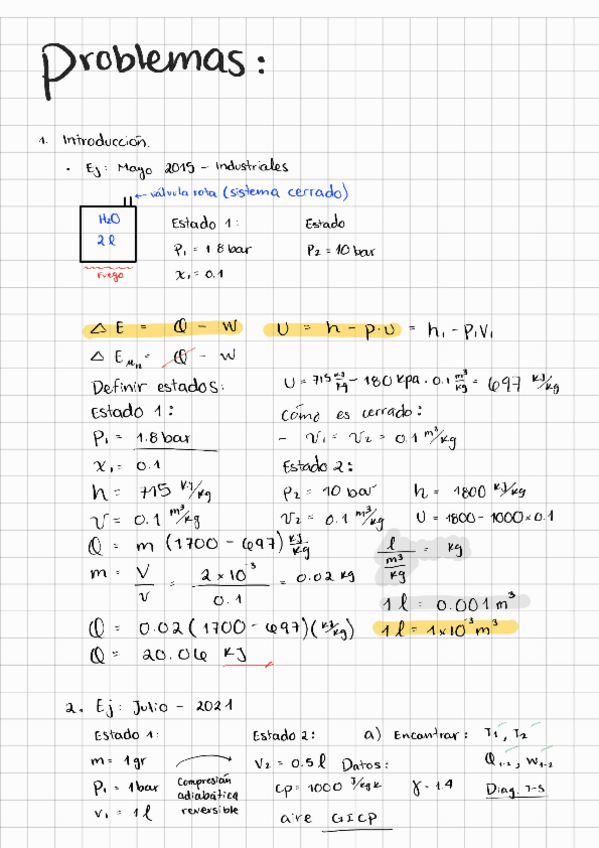 Problemas:
1. Introducción.
• Ej: Mayo 2015 – Industriales
← válvula rota (sistema cerrado)
H₂O
2 l
Fuego
Estado 1:
P₁ = 1.8 bar
x₁ = 0.1
Estado
P₂ = 10 bar
△E = Q – W
U = h – p·v = h₁ – P₁V₁
△E = Q – W
Definir estados:
U = 715 kJ/kg – 180 kPa · 0.1 m³/kg = 697 kJ/kg
Estado 1:
P₁ = 1.8 bar
x₁ = 0.1
h = 715 kJ/kg
v = 0.1 m³/kg
Cómo es cerrado:
– v₁ = v₂ = 0.1 m³/kg
Estado 2:
P₂ = 10 bar
h = 1800 kJ/kg
v₂ = 0.1 m³/kg
U = 1800 – 1000 × 0.1
Q = m (1700 – 697) kJ/kg
m = V/v = 2 × 10⁻³/0.1 = 0.02 kg
l/(m³/kg) = kg
1 l = 0.001 m³
Q = 0.02 (1700 – 697) (kJ/kg)
1 l = 1×10⁻³ m³
Q = 20.06 kJ
2. Ej: Julio – 2021
Estado 1:
m = 1 gr
P₁ = 1 bar
V₁ = 1 l
Compresión
adiabática
reversible
Estado 2:
V₂ = 0.5 l
Datos:
Cp = 1000 J/kgK
γ = 1.4
aire GICP
a) Encontrar: T₁, T₂
Q₁₋₂, W₁₋₂
Diag. T-S